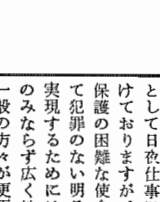 として日夜仕事に
けておりますが、
保護の困難な使命
て犯罪のない明る
実現するためには
のみならず広く
一般の方々が更